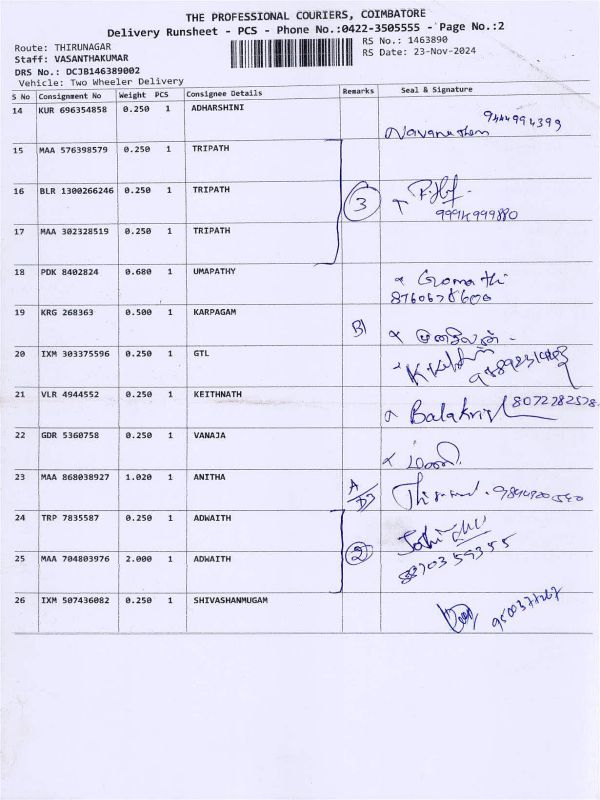 THE PROFESSIONAL COURIERS, COIMBATORE
Delivery Runsheet - PCS - Phone No.:0422-3505555 - Page No.:2
Route: THIRUNAGAR
RS No.: 1463890
Staff: VASANTHAKUMAR
RS Date: 23-Nov-2024
DRS No.: DCJB146389002
Vehicle: Two Wheeler Delivery
S No Consignment No Weight PCS Consignee Details Remarks Seal & Signature
14 KUR 696354858 0.250 1 ADHARSHINI
9444994399
15 MAA 576398579 0.250 1 TRIPATH
16 BLR 1300266246 0.250 1 TRIPATH 3
9994999880
17 MAA 302328519 0.250 1 TRIPATH
18 PDK 8402824 0.680 1 UMAPATHY
Gomathi
8760678600
19 KRG 268363 0.500 1 KARPAGAM
20 IXM 303375596 0.250 1 GTL
21 VLR 4944552 0.250 1 KEITHNATH
Balakris 8072282578
22 GDR 5360758 0.250 1 VANAJA
23 MAA 868038927 1.020 1 ANITHA
24 TRP 7835587 0.250 1 ADWAITH
25 MAA 704803976 2.000 1 ADWAITH 2
8870359355
26 IXM 507436082 0.250 1 SHIVASHANMUGAM